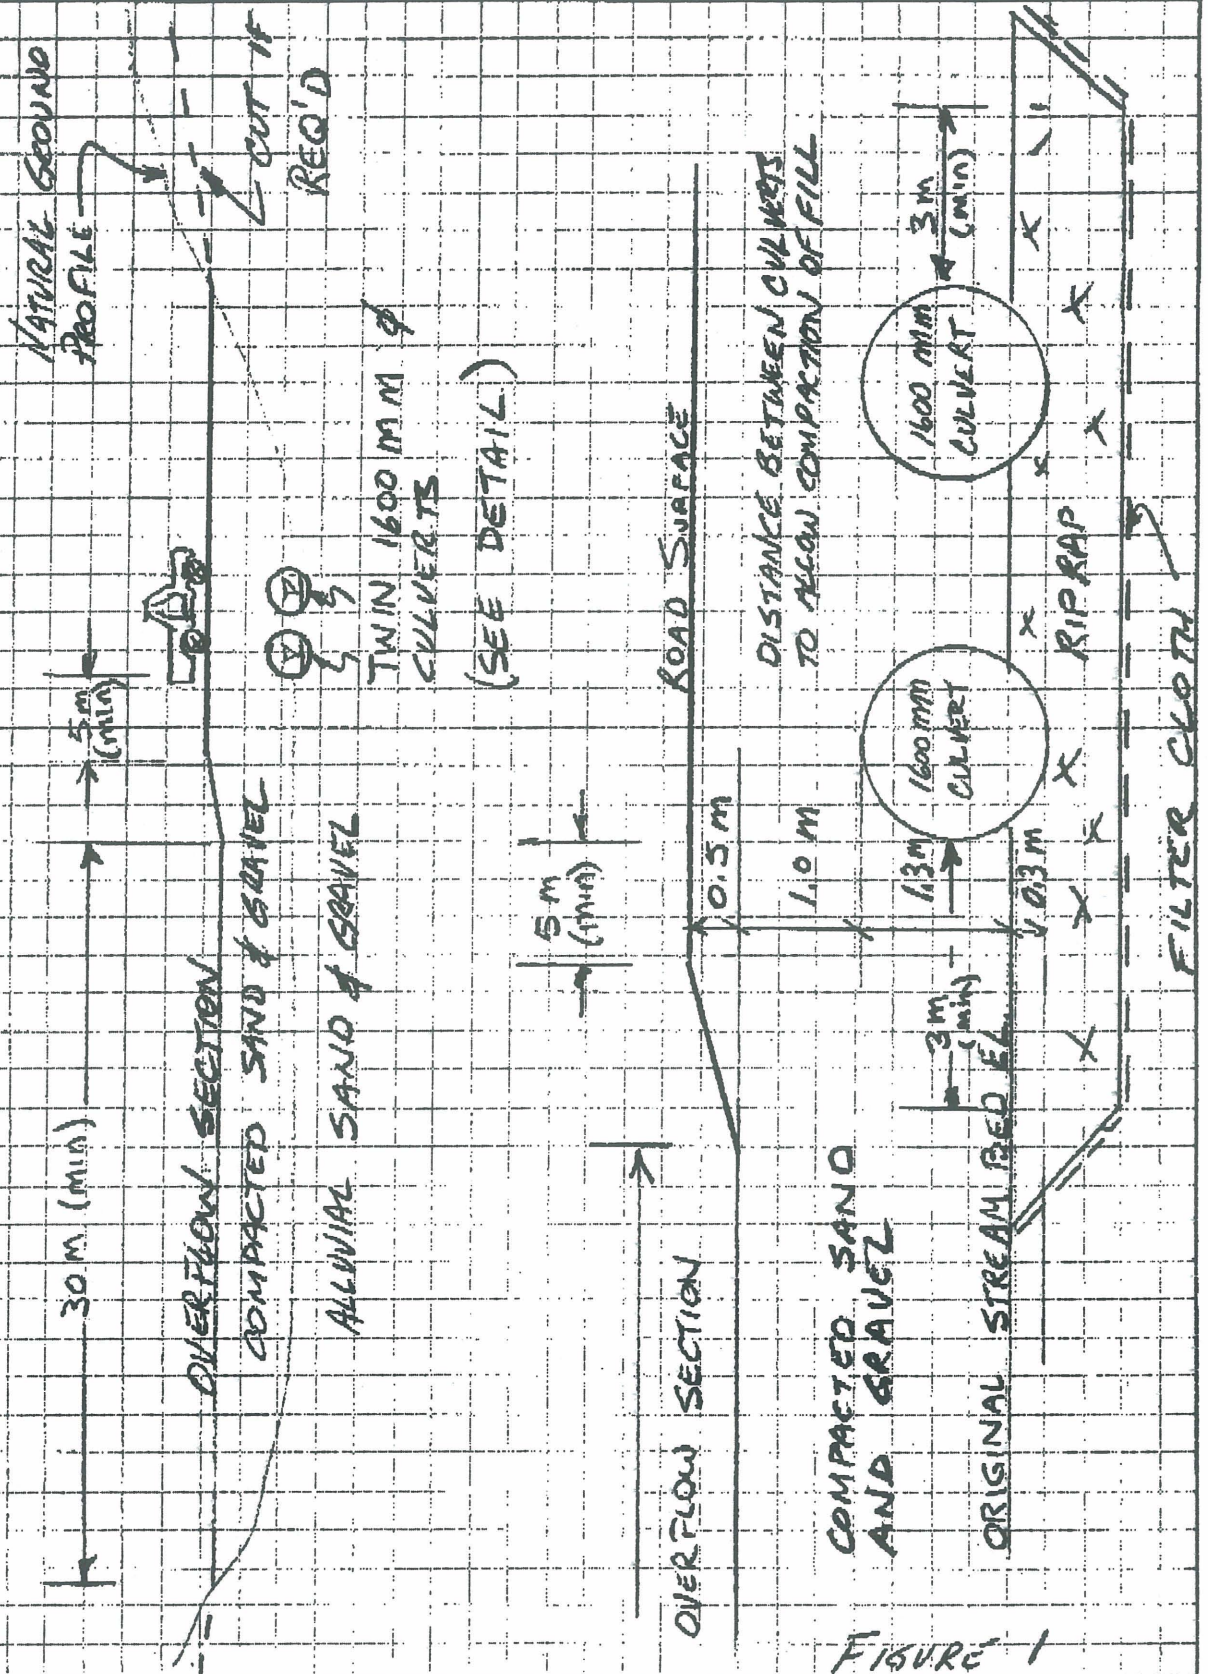 NATURAL GROUND
PROFILE
CUT IF
REQ'D
30 m (min)
5 m
(min)
OVERFLOW SECTION
COMPACTED SAND & GRAVEL
ALLUVIAL SAND & GRAVEL
TWIN 1600 MM φ
CULVERTS
(SEE DETAIL)
5 m
(min)
OVERFLOW SECTION
ROAD SURFACE
0.5 m
1.0 m
1.3 m
0.3 m
DISTANCE BETWEEN CULVERTS
TO ALLOW COMPACTION OF FILL
COMPACTED SAND
AND GRAVEL
3 m
(min)
1600 mm
CULVERT
1600 MM
CULVERT
3 m
(min)
ORIGINAL STREAM BED EL.
RIPRAP
FILTER CLOTH
FIGURE 1